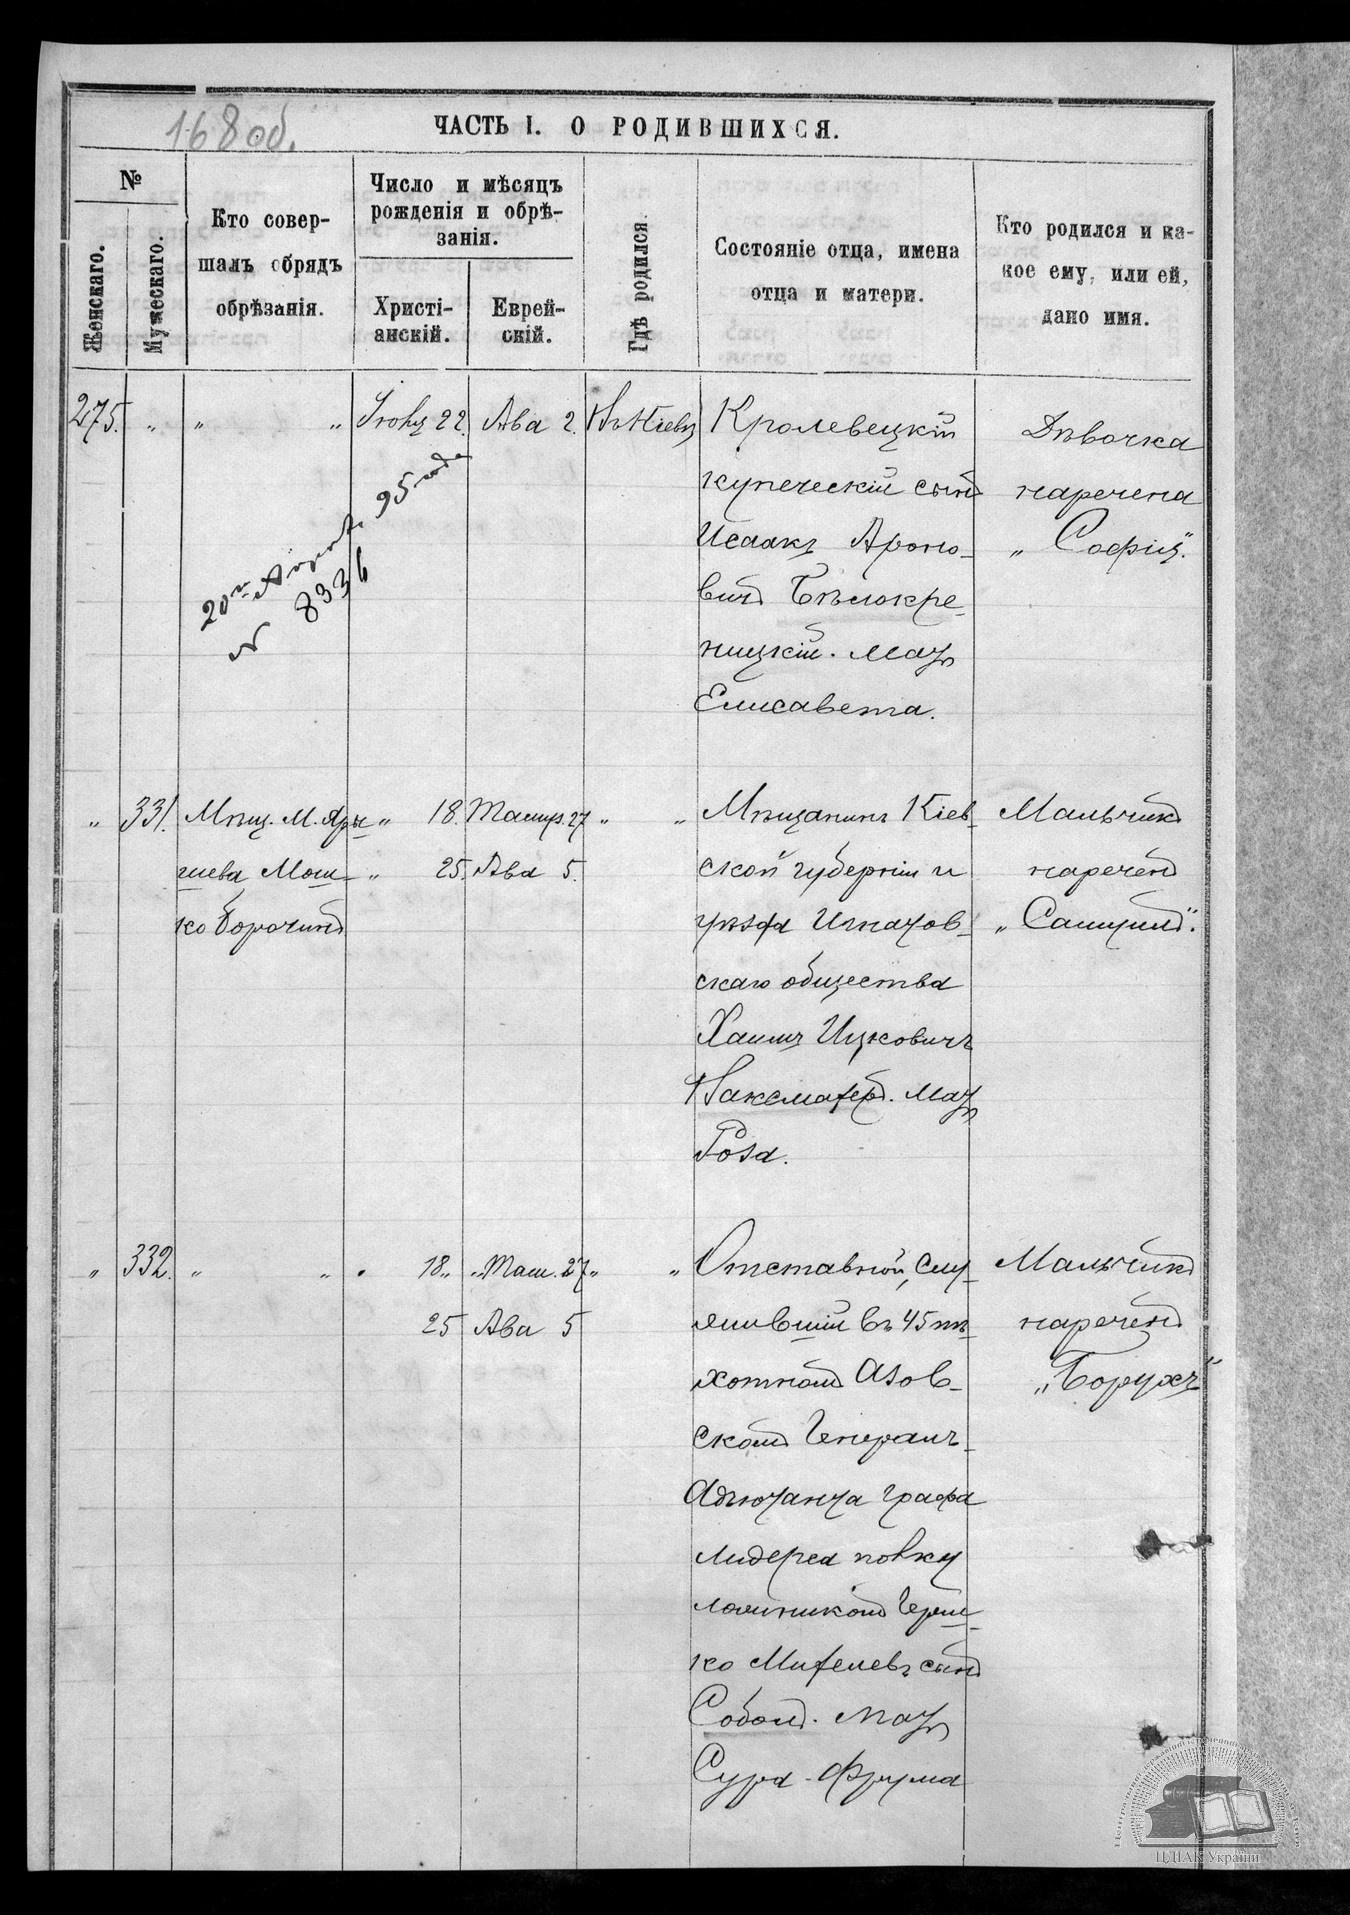 168 об.
ЧАСТЬ I. О РОДИВШИХСЯ.
№
Женскаго.
Мужескаго.
Кто совер-
шалъ обрядъ
обрѣзанія.
Число и мѣсяцъ
рожденія и обрѣ-
занія.
Христі-
анскій.
Еврей-
скій.
Гдѣ родился.
Состояніе отца, имена
отца и матери.
Кто родился и ка-
кое ему, или ей,
дано имя.
275. „ „ „ Іюля 22. Ава 2. Въ Кіевѣ
Кролевецкій
купеческій сынъ
Исаакъ Ароно-
вичъ Бѣлокре-
ницкій. Мать
Елисавета.
Дѣвочка
наречена
„Софія".
20го Августа 95 года
№ 8336
„ 331. Мѣщ. М. Яры- „ 18. Тамуз. 27 „ „
шева Мош- „ 25. Ава 5.
ко Борочинъ
Мѣщанинъ Кіев-
ской губерніи и
уѣзда Игнатов-
скаго общества
Хаимъ Ицковичъ
Ваксмахеръ. Мать
Роза.
Мальчикъ
нареченъ
„Самуилъ".
„ 332. „ „ „ 18 „ „Там. 27 „ „
25 Ава 5
Отставной, слу-
жившій въ 45 пѣ-
хотномъ Азов-
скомъ Генералъ-
Адъютанта графа
Лидерса полку
Герш-
ко Михелевъ сынъ
Соболь. Мать
Сура-Фрума
Мальчикъ
нареченъ
„Борухъ"
ЦДІАК України